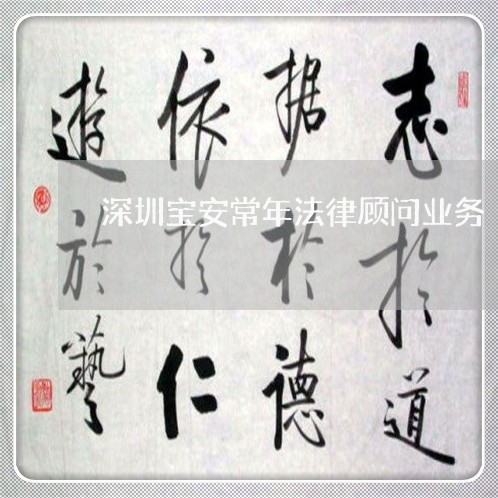 志於道
据於德
依於仁
遊於藝
深圳宝安常年法律顾问业务